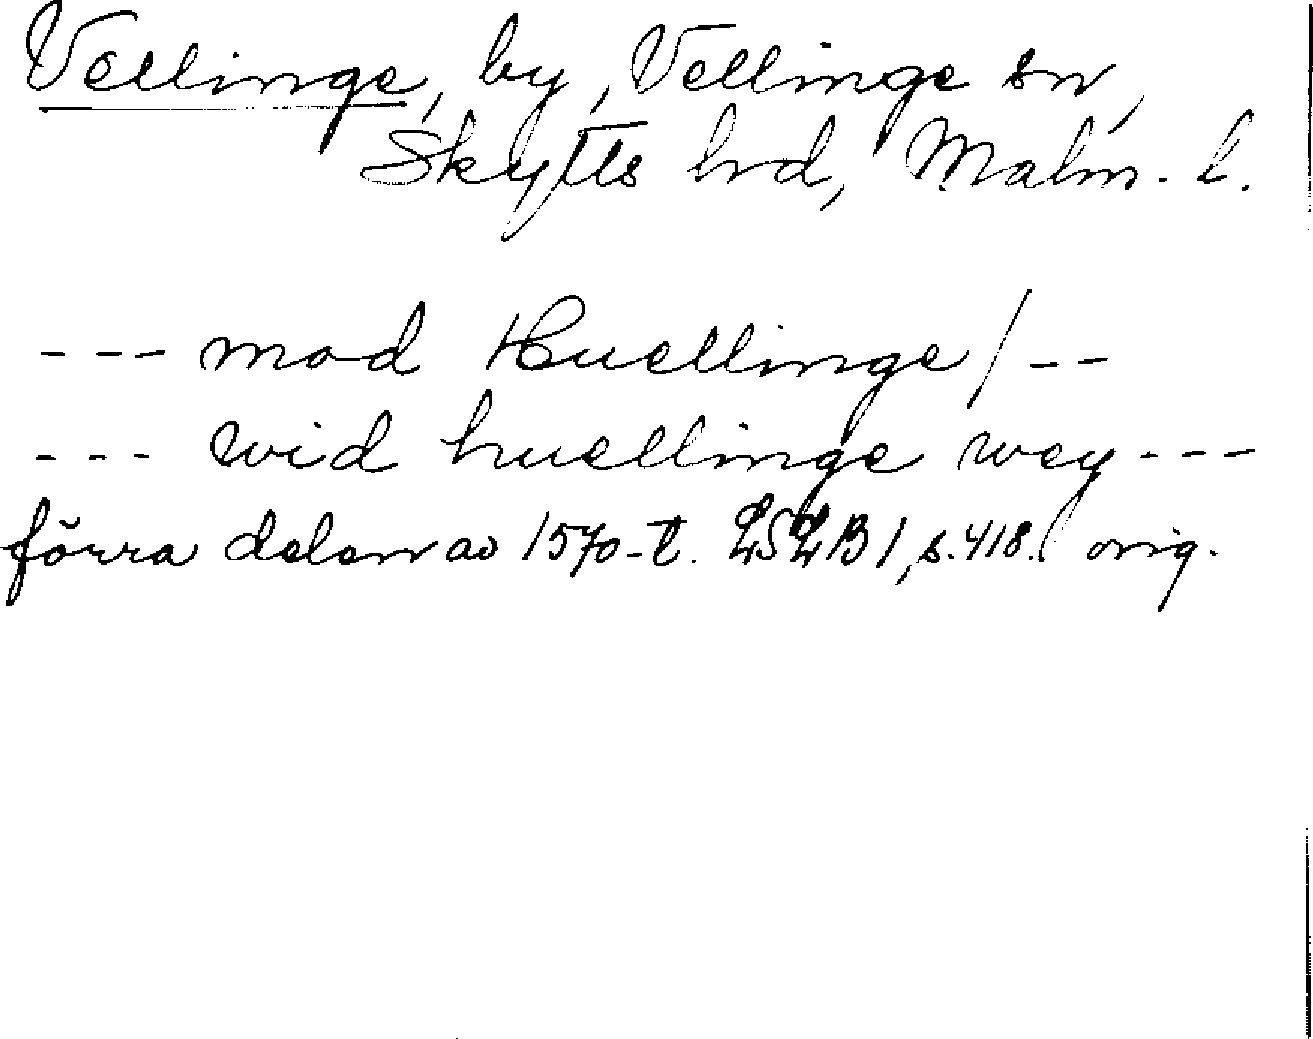 Vellinge, by, Vellinge sn,
Skytts hrd, Malm. l.
--- mod Huellinge/--
--- wid huellinge wey---
förra delen av 1570-t. LSLB 1, s.418. orig.